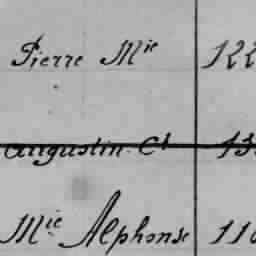 Pierre Mie 122
Augustin Ct 13
Mie Alphonse 110